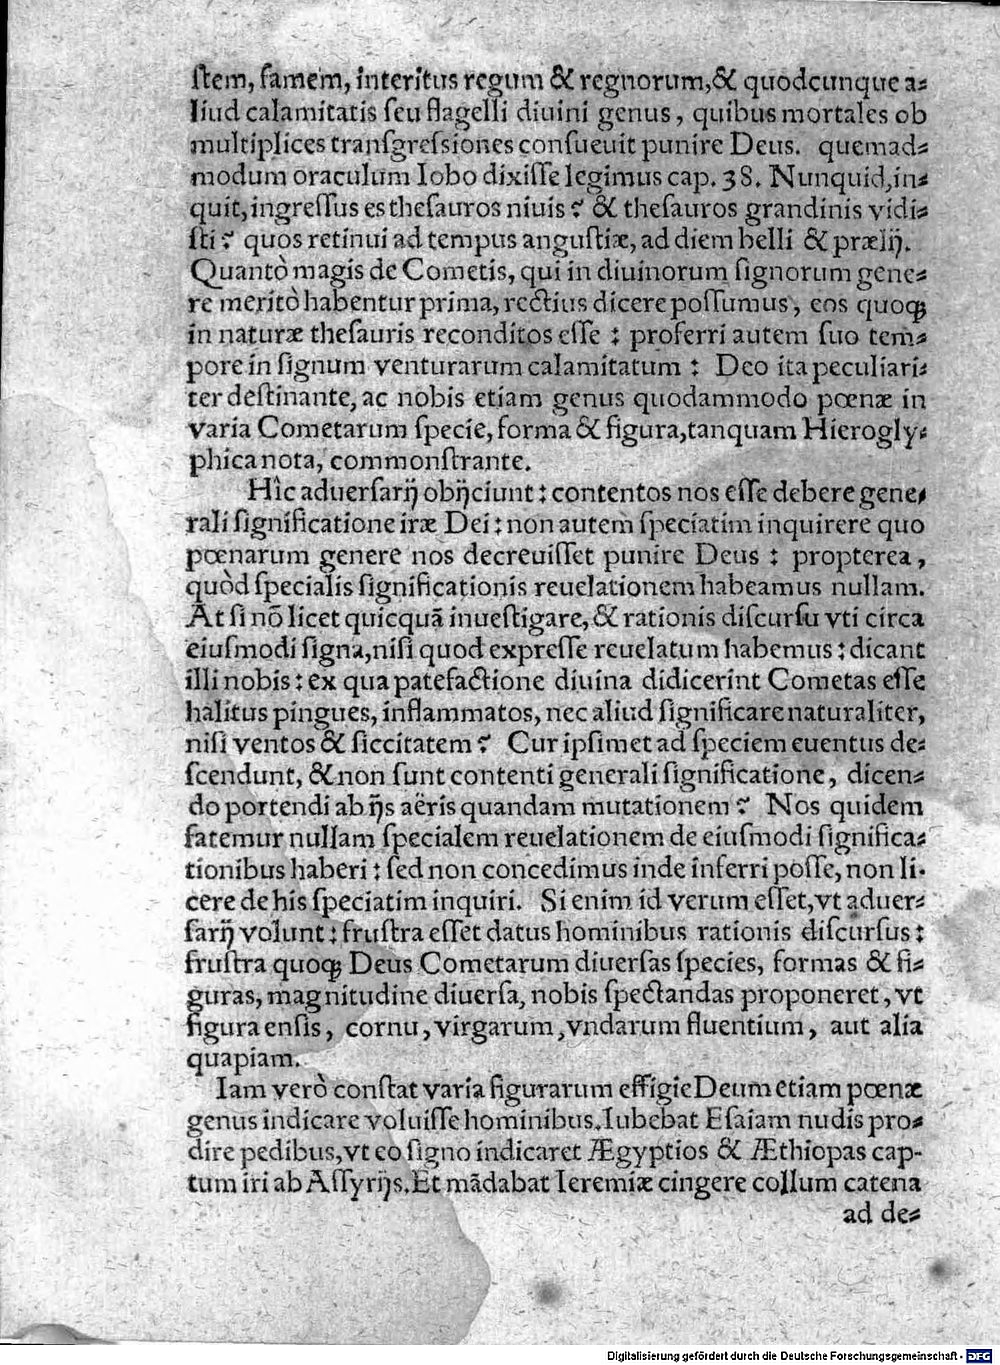 ſtem, famem, interitus regum & regnorum,& quodcunque a⸗
liud calamitatis ſeu flagelli diuini genus, quibus mortales ob
multiplices tranſgreſsiones conſueuit punire Deus. quemad⸗
modum oraculum Iobo dixiſſe legimus cap. 38. Nunquid,in⸗
quit,ingreſſus es theſauros niuis? & theſauros grandinis vidi⸗
ſti? quos retinui ad tempus anguſtiæ, ad diem belli & prælij.
Quantò magis de Cometis, qui in diuinorum ſignorum gene⸗
re meritò habentur prima, rectius dicere poſſumus, eos quoqȝ
in naturæ theſauris reconditos eſſe : proferri autem ſuo tem⸗
pore in ſignum venturarum calamitatum : Deo ita peculiari⸗
ter deſtinante, ac nobis etiam genus quodammodo pœnæ in
varia Cometarum ſpecie, forma & figura,tanquam Hierogly⸗
phica nota, commonſtrante.
Hîc aduerſarij obijciunt : contentos nos eſſe debere gene⸗
rali ſignificatione iræ Dei : non autem ſpeciatim inquirere quo
pœnarum genere nos decreuiſſet punire Deus : propterea,
quòd ſpecialis ſignificationis reuelationem habeamus nullam.
At ſi nõ licet quicquã inueſtigare, & rationis diſcurſu vti circa
eiuſmodi ſigna,niſi quod expreſſe reuelatum habemus : dicant
illi nobis : ex qua patefactione diuina didicerint Cometas eſſe
halitus pingues, inflammatos, nec aliud ſignificare naturaliter,
niſi ventos & ſiccitatem? Cur ipſimet ad ſpeciem euentus de⸗
ſcendunt, & non ſunt contenti generali ſignificatione, dicen⸗
do portendi ab ijs aëris quandam mutationem? Nos quidem
fatemur nullam ſpecialem reuelationem de eiuſmodi ſignifica⸗
tionibus haberi : ſed non concedimus inde inferri poſſe, non li⸗
cere de his ſpeciatim inquiri. Si enim id verum eſſet,vt aduer⸗
ſarij volunt : fruſtra eſſet datus hominibus rationis diſcurſus :
fruſtra quoqȝ Deus Cometarum diuerſas ſpecies, formas & fi⸗
guras, magnitudine diuerſa, nobis ſpectandas proponeret, vt
figura enſis, cornu, virgarum, vndarum fluentium, aut alia
quapiam.
Iam verò conſtat varia figurarum effigie Deum etiam pœnæ
genus indicare voluiſſe hominibus. Iubebat Eſaiam nudis pro⸗
dire pedibus,vt eo ſigno indicaret Ægyptios & Æthiopas cap-
tum iri ab Aſſyrijs. Et mãdabat Ieremiæ cingere collum catena
ad de⸗
Digitalisierung gefördert durch die Deutsche Forschungsgemeinschaft - DFG